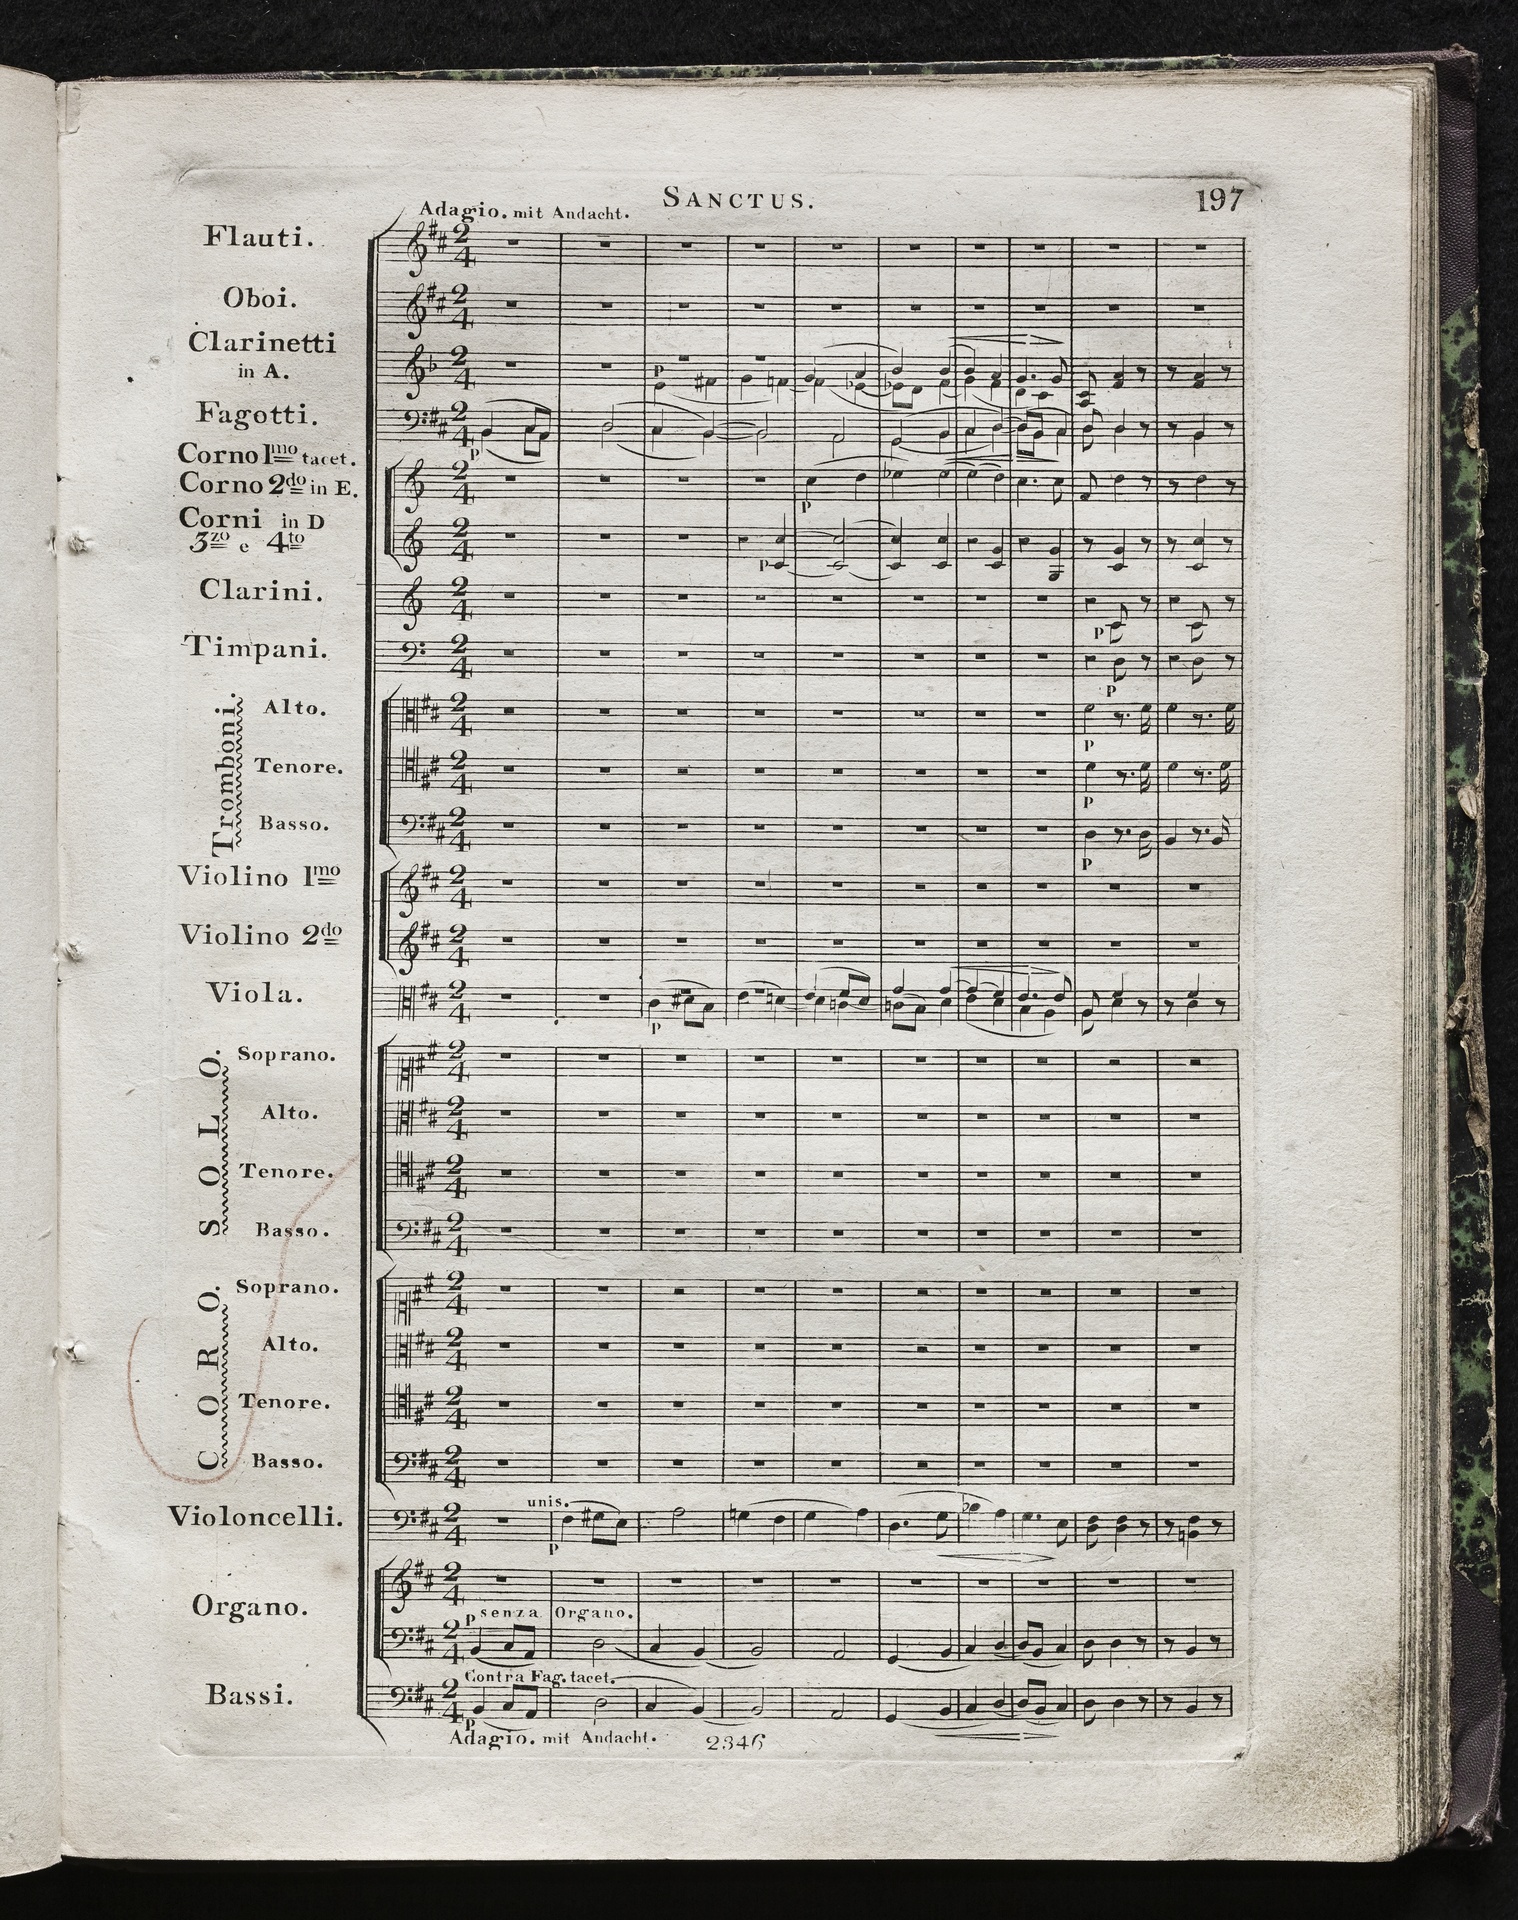 SANCTUS.
197
Adagio. mit Andacht.
Flauti.
Oboi.
Clarinetti
in A.
P
Fagotti.
P
Corno 1mo tacet.
Corno 2do in E.
P
Corni in D
3zo e 4to
P
Clarini.
P
Timpani.
P
Tromboni.
Alto.
P
Tenore.
P
Basso.
P
Violino 1mo
Violino 2do
Viola.
P
SOLO.
Soprano.
Alto.
Tenore.
Basso.
CORO.
Soprano.
Alto.
Tenore.
Basso.
unis.
Violoncelli.
P
Organo.
P senza Organo.
Contra Fag. tacet.
Bassi.
P
Adagio. mit Andacht.
2346